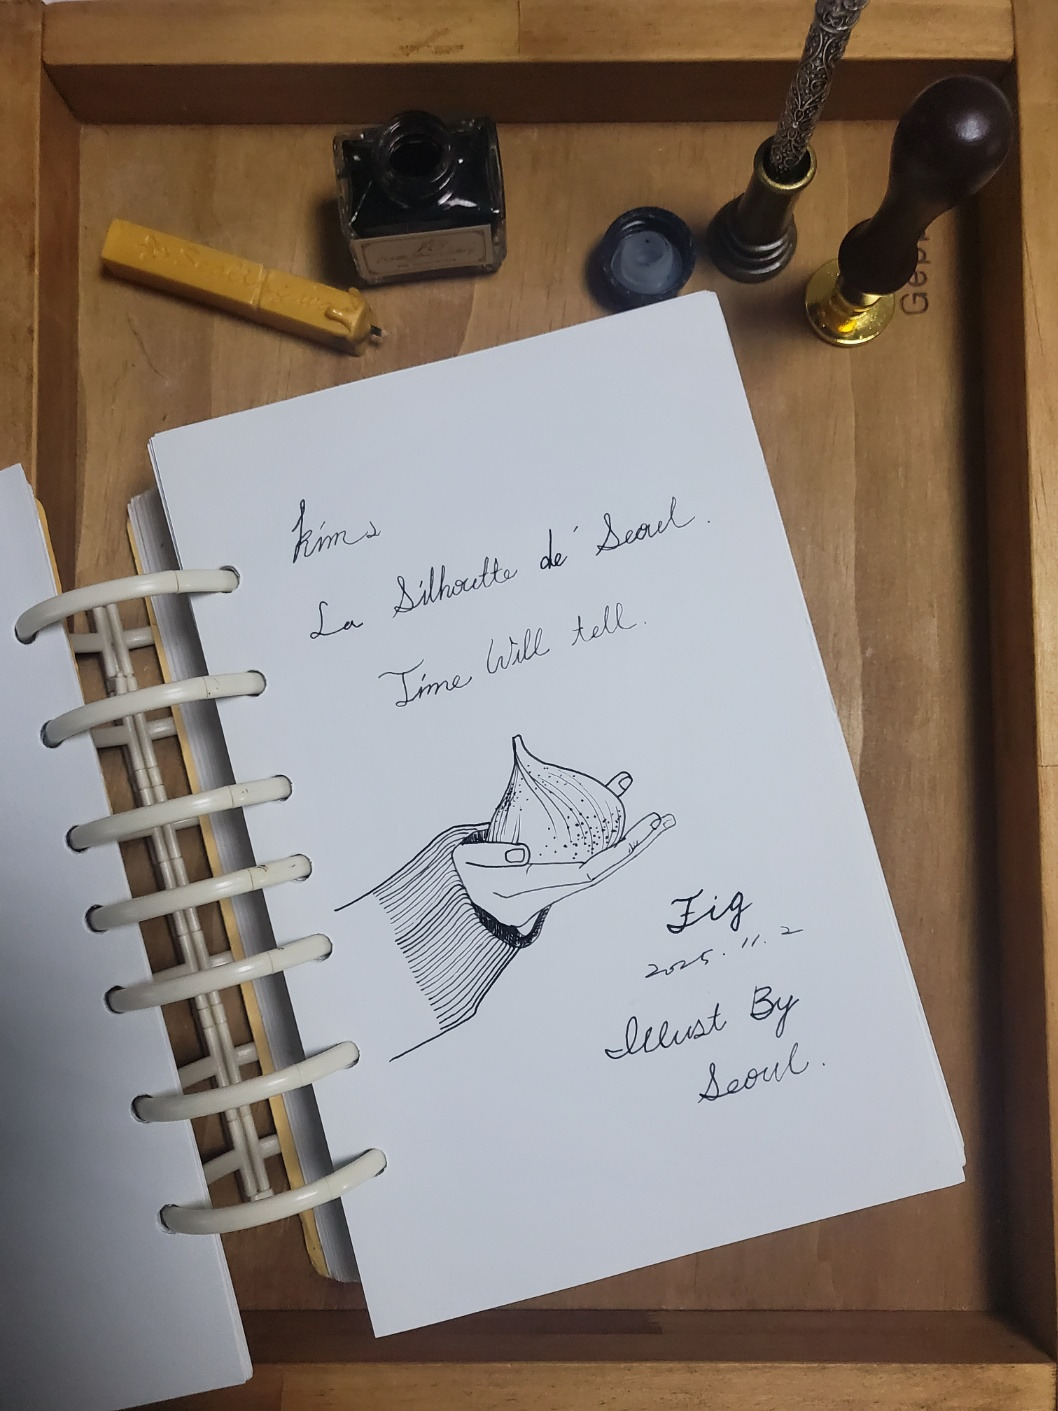 Kims
La Silhoutte de' Seoul.
Time Will tell.
Fig
2025. 11. 2
Illust By
Seoul.